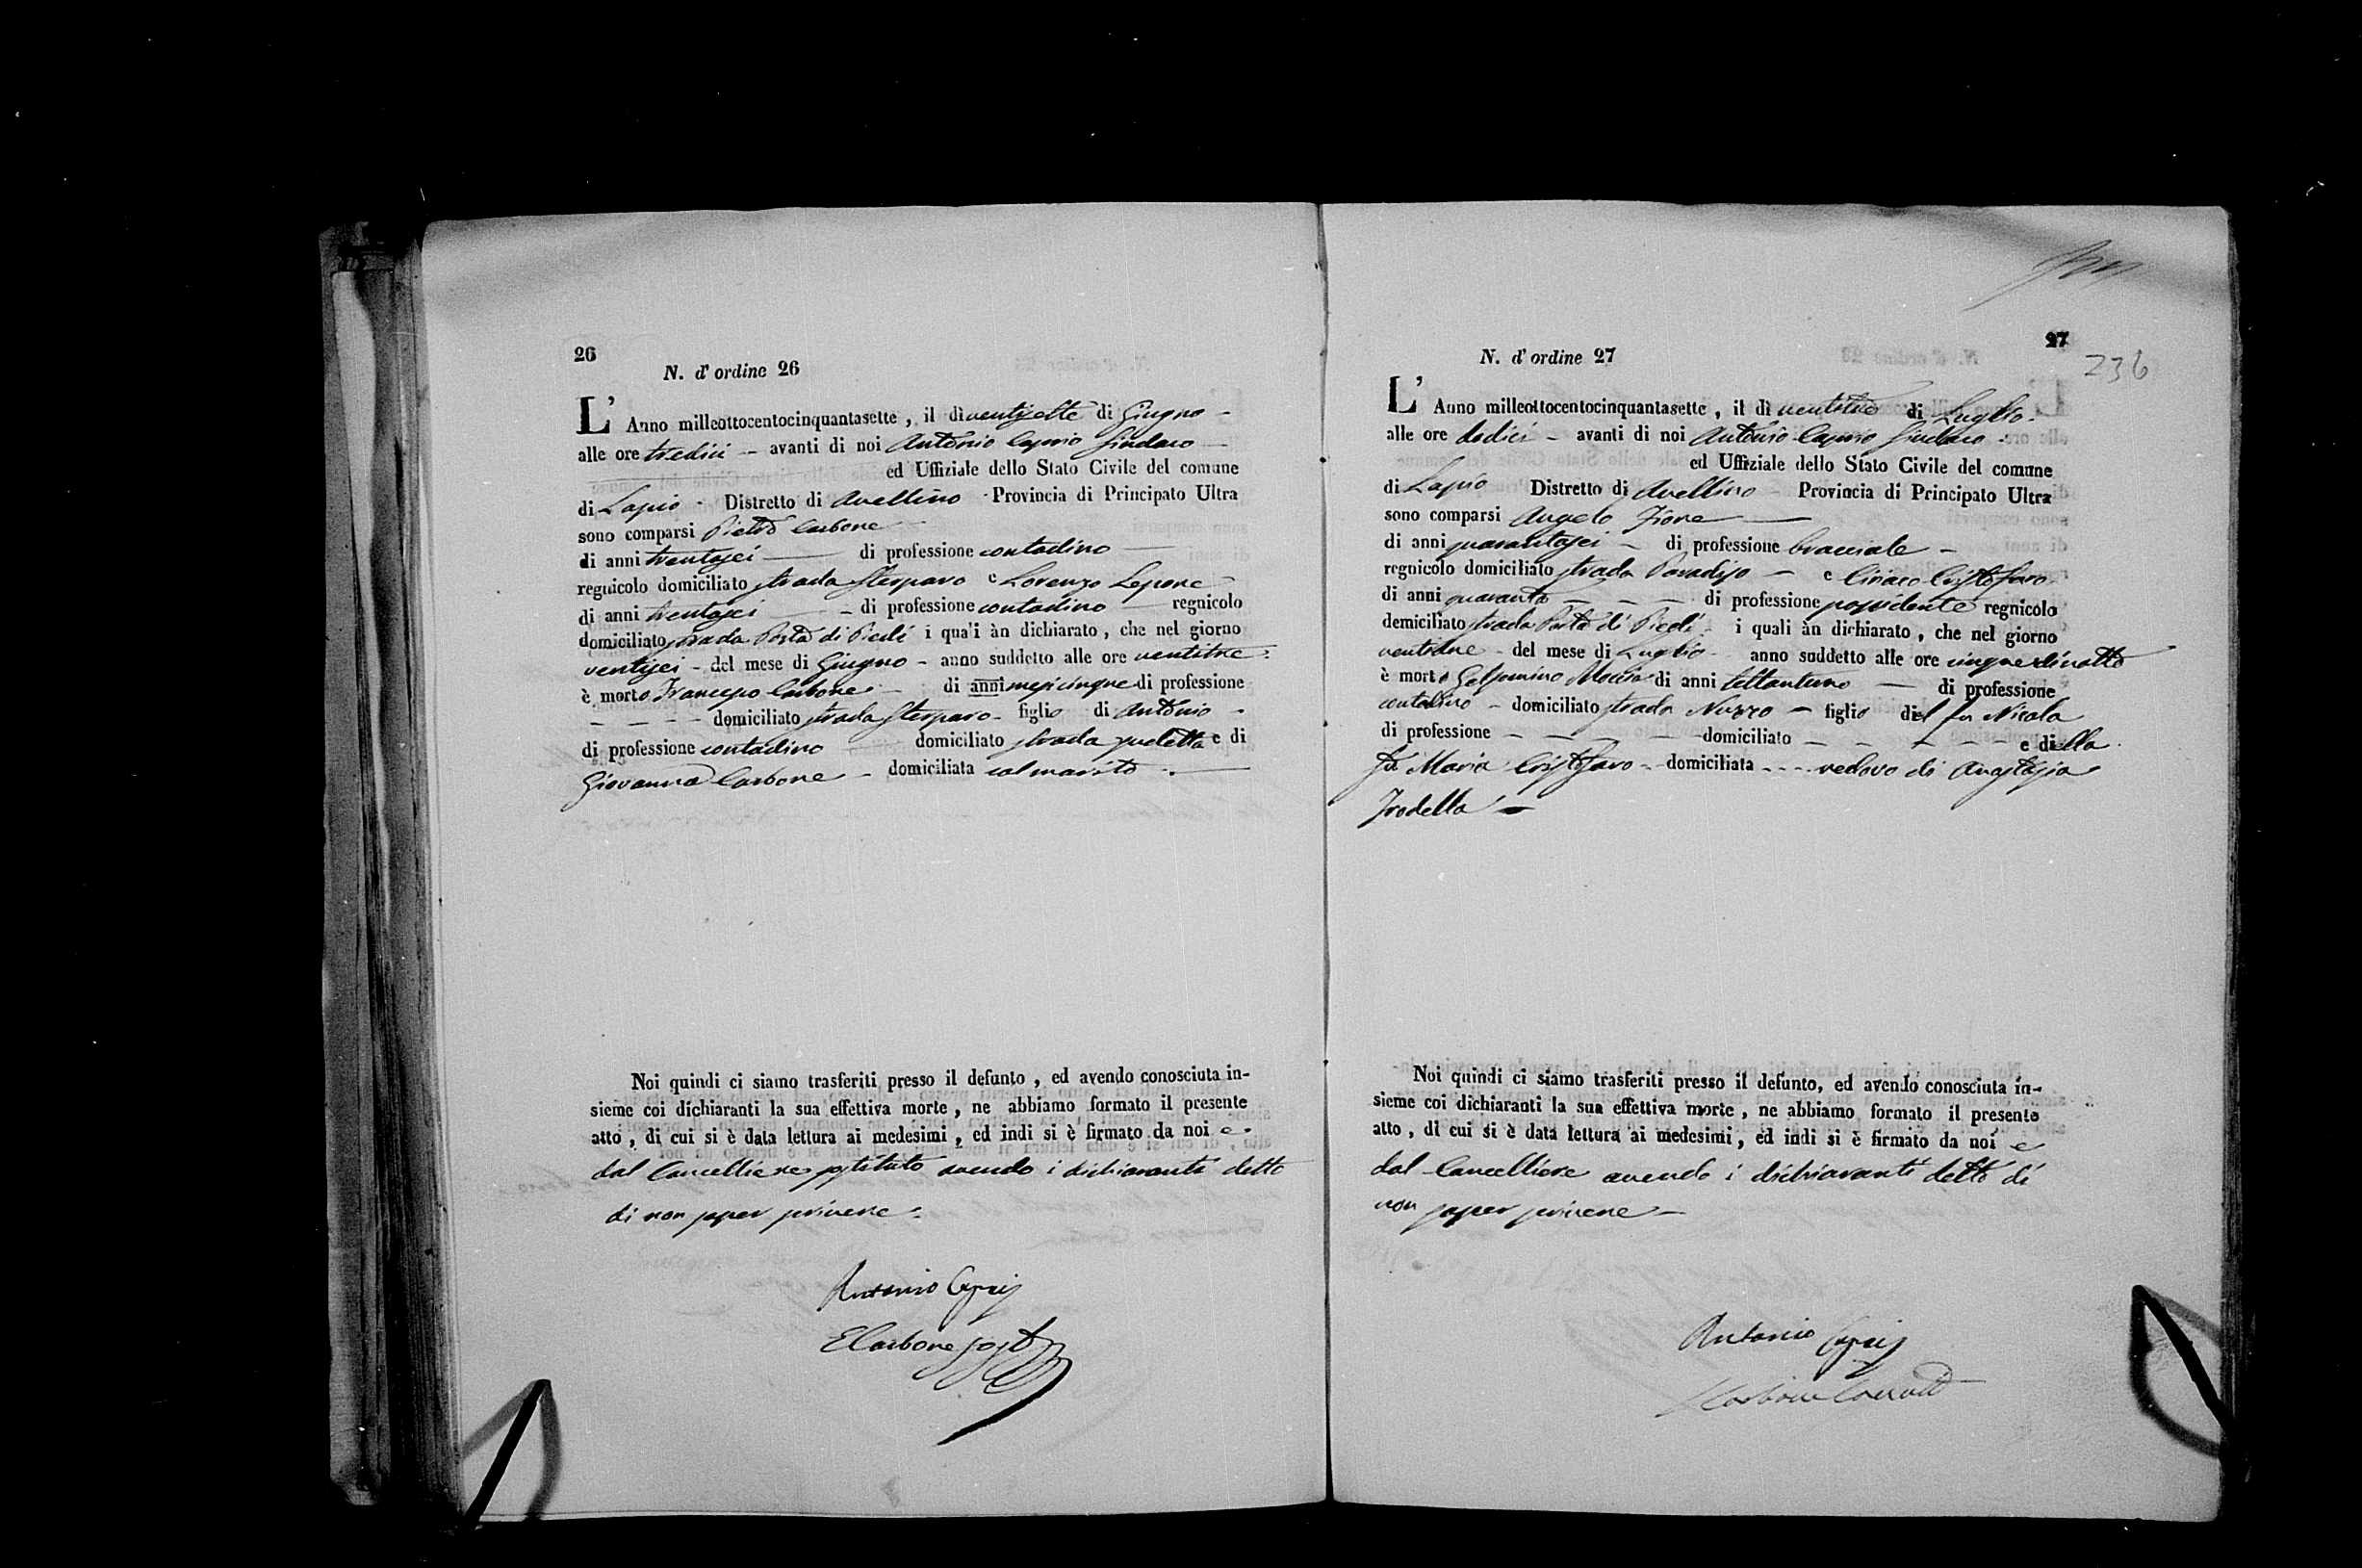 26
N. d'ordine 26
L' Anno milleottocentocinquantasette, il dì ventisette di Giugno -
alle ore tredici - avanti di noi Antonio Caprio Sindaco
ed Uffiziale dello Stato Civile del comune
di Lapio - Distretto di Avellino - Provincia di Principato Ultra
sono comparsi Pietro Carbone
di anni trentasei - di professione contadino
regnicolo domiciliato strada Sterparo e Lorenzo Lepore
di anni trentasei - di professione contadino regnicolo
domiciliato strada Porta di Piedi i quali àn dichiarato, che nel giorno
ventisei - del mese di Giugno - anno suddetto alle ore ventitre
è morto Francesco Carbone - di anni mesi cinque di professione
- - - - domiciliato strada Sterparo - figlio di Antonio -
di professione contadino domiciliato strada sudetta e di
Giovanna Carbone - domiciliata col marito
Noi quindi ci siamo trasferiti presso il defunto, ed avendo conosciuta in-
sieme coi dichiaranti la sua effettiva morte, ne abbiamo formato il presente
atto, di cui si è data lettura ai medesimi, ed indi si è firmato da noi e
dal Cancelliere sostituto avendo i dichiaranti detto
di non saper scrivere
Antonio Caprio
E Carbone Sost
27
236
N. d'ordine 27
L' Anno milleottocentocinquantasette, il dì ventitre di Luglio -
alle ore dodici - avanti di noi Antonio Caprio Sindaco -
ed Uffiziale dello Stato Civile del comune
di Lapio Distretto di Avellino - Provincia di Principato Ultra
sono comparsi Angelo Fiore
di anni quarantasei - di professione bracciale -
regnicolo domiciliato strada Paradiso - e Ciriaco Cristofaro
di anni quaranta - - - di professione possidente regnicolo
domiciliato strada Porta di Piedi i quali àn dichiarato, che nel giorno
ventitre - del mese di Luglio - anno suddetto alle ore cinque di notte
è morto Gelsomino di anni settantuno - di professione
contadino - domiciliato strada Nuzzo - figlio del fu Nicola
di professione - - - - domiciliato - - - - - e della
fu Maria Cristofaro - domiciliata - - - vedovo di Anastasia
Noi quindi ci siamo trasferiti presso il defunto, ed avendo conosciuta in-
sieme coi dichiaranti la sua effettiva morte, ne abbiamo formato il presente
atto, di cui si è data lettura ai medesimi, ed indi si è firmato da noi e
dal Cancelliere avendo i dichiaranti detto di
non saper scrivere -
Antonio Caprio
Carbone